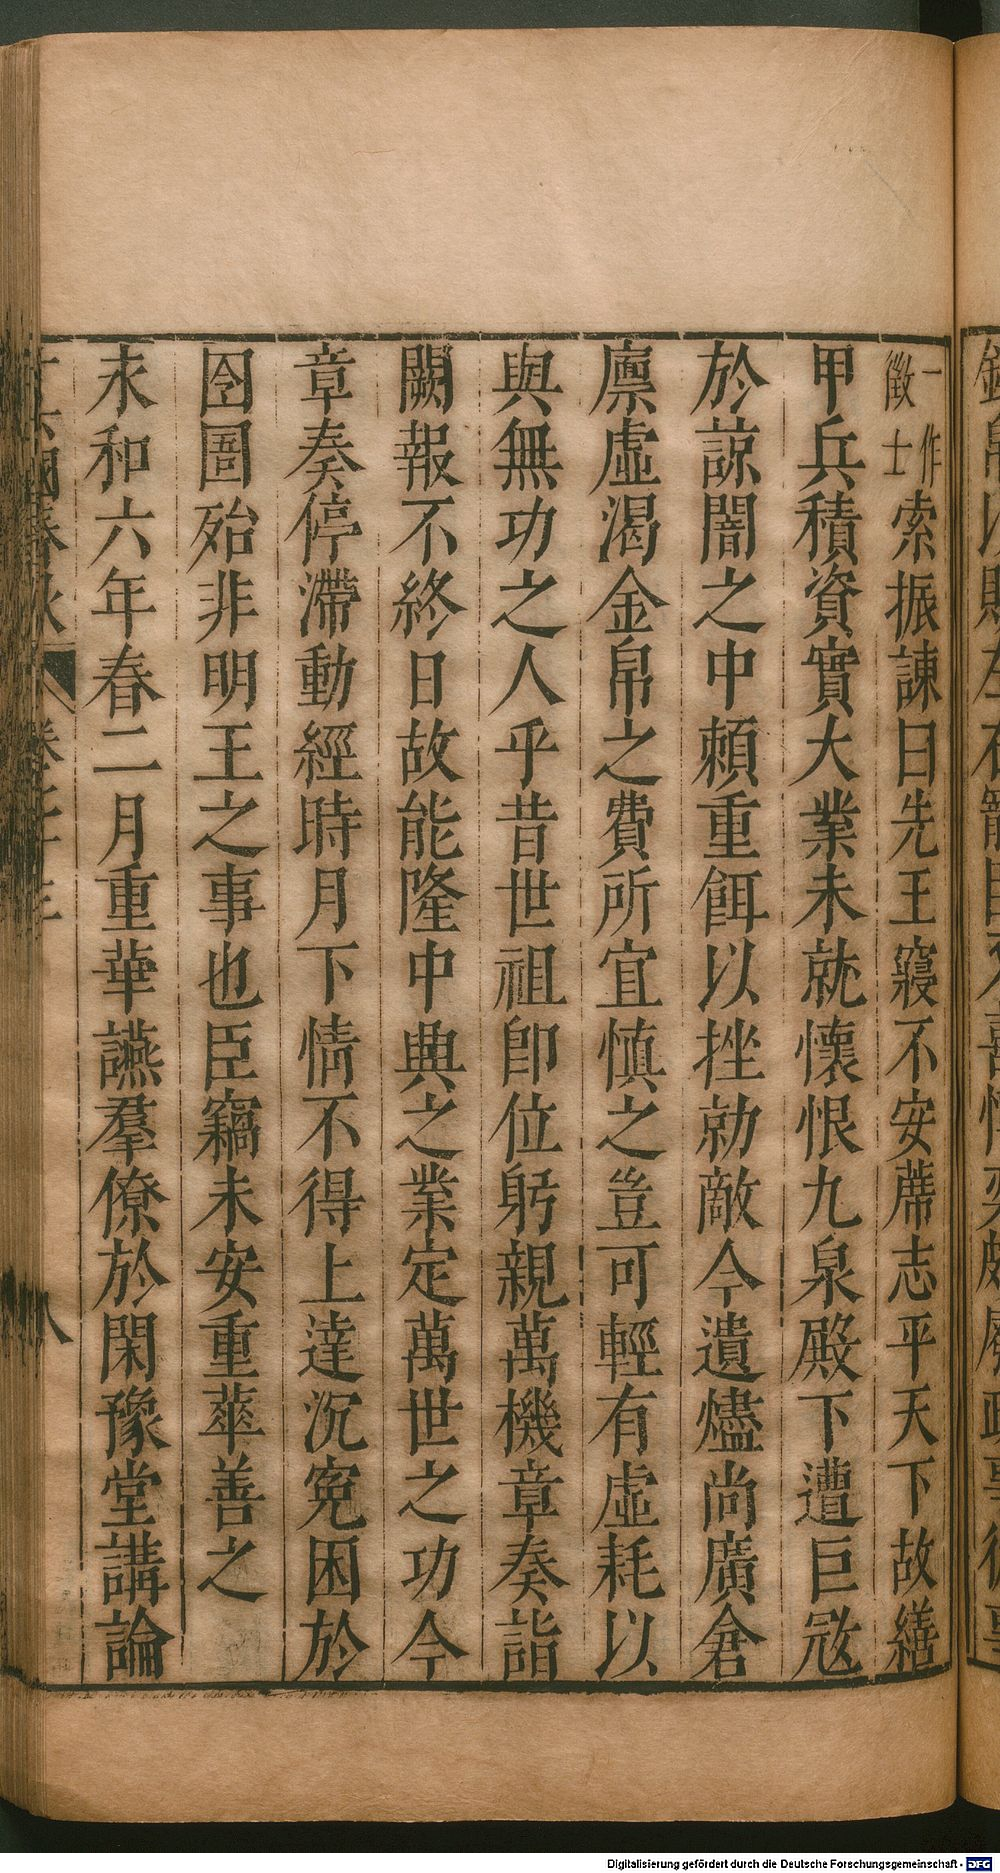 一作徵士索振諫曰先王寢不安蓆志平天下故繕
甲兵積資實大業未就懷恨九泉殿下遭巨寇
於諒闇之中頼重餌以挫勍敵今遺燼尚廣倉
廪虛渴金帛之費所宜慎之豈可輕有虛耗以
與無功之人乎昔世祖卽位躬親萬機章奏詣
闕報不終日故能隆中興之業定萬世之功今
章奏停滯動經時月下情不得上達沉寃困於
囹圄殆非明王之事也臣竊未安重華善之
永和六年春二月重華讌羣僚於閑豫堂講論
八
Digitalisierung gefördert durch die Deutsche Forschungsgemeinschaft - DFG